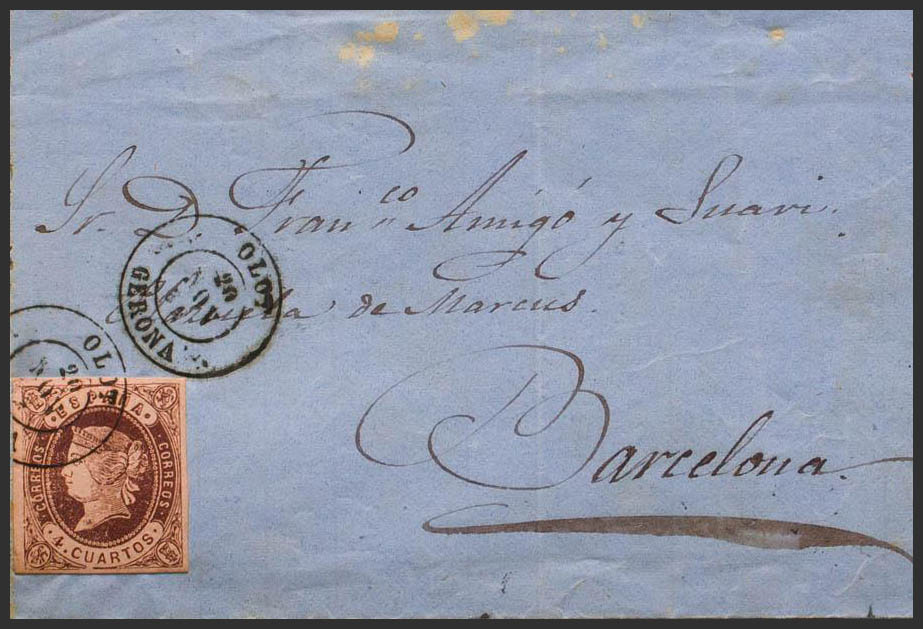 Sr. D. Fran.co Amigó y Suari.
de Marcus.
Barcelona.
OLOT
20 NOV
GERONA
OLOT
20 NOV
ESPAÑA
CORREOS CORREOS
4. CUARTOS